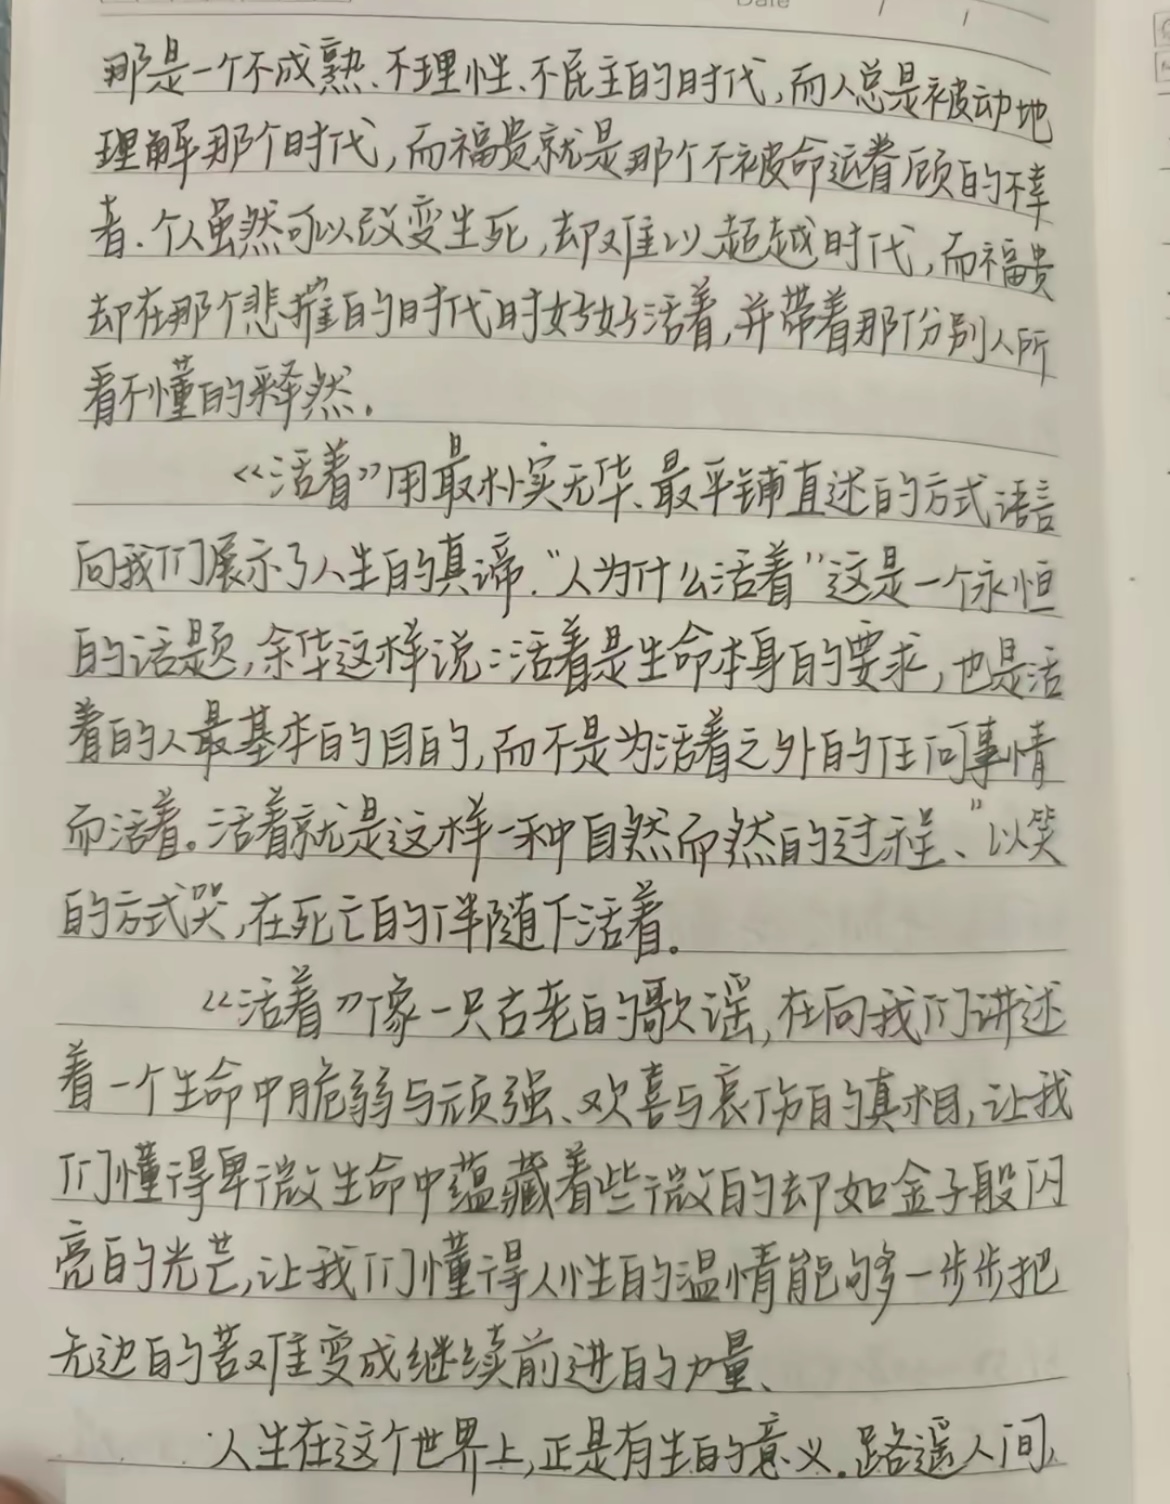 Date / /
那是一个不成熟、不理性、不民主的时代，而人总是被动地
理解那个时代，而福贵就是那个不被命运眷顾的不幸
者.个人虽然可以改变生死，却难以超越时代，而福贵
却在那个悲摧的时代时好好活着，并带着那份别人所
看不懂的释然.
《活着》用最朴实无华、最平铺直述的方式语言
向我们展示了人生的真谛.“人为什么活着”这是一个永恒
的话题，余华这样说：活着是生命本身的要求，也是活
着的人最基本的目的，而不是为活着之外的任何事情
而活着。活着就是这样一种自然而然的过程、”以笑
的方式哭，在死亡的伴随下活着。
《活着》像一只古老的歌谣，在向我们讲述
着一个生命中脆弱与顽强、欢喜与哀伤的真相，让我
们懂得卑微生命中蕴藏着些微的却如金子般闪
亮的光芒，让我们懂得人性的温情能够一步步把
无边的苦难变成继续前进的力量、
人生在这个世界上，正是有生的意义.路遥人间，